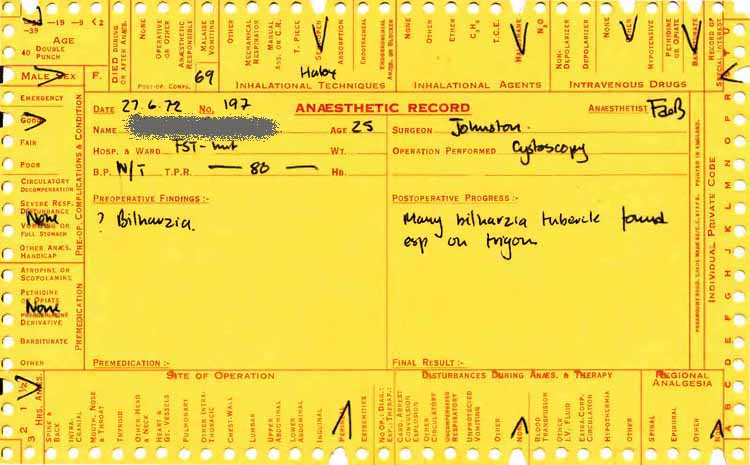 -39 -19 -9 <2
40 AGE
DOUBLE PUNCH
MALE SEX F.
DIED DURING OR AFTER ANÆS.
NONE
OPERATIVE OR OTHER
ANÆSTHETIC RESPONSIBLE
MALAISE VOMITING
OTHER
POST-OP. COMPS. 69
MECHANICAL RESPIRATOR
MANUAL ASS. OR C.R.
T. PIECE
SEMI-OPEN
ABSORPTION
ENDOTRACHEAL
Halox
INHALATIONAL TECHNIQUES
NONE
OTHER
ETHER
C₃H₆
T.C.E.
HALOTHANE
N₂O
INHALATIONAL AGENTS
NON-DEPOLARIZER
DEPOLARIZER
NONE
HYPOTENSIVE
PETHIDINE OR OPIATE
BARBITURATE
INTRAVENOUS DRUGS
RECORD OF SPECIAL INTEREST
EMERGENCY
GOOD
FAIR
POOR
CIRCULATORY DECOMPENSATION
SEVERE RESP. DISTURBANCE
None
VOMITING OR FULL STOMACH
OTHER ANÆS. HANDICAP
PRE-OP. COMPLICATIONS & CONDITION
ATROPINE OR SCOPOLAMINE
PETHIDINE OR OPIATE
None
DERIVATIVE
BARBITURATE
OTHER
PREMEDICATION
DATE 27.6.72 NO. 197 ANÆSTHETIC RECORD ANÆSTHETIST
NAME AGE 25 SURGEON Johnston
HOSP. & WARD FST- hut WT. OPERATION PERFORMED Cystoscopy
B.P. N/T T.P.R. — 80 — HB.
PREOPERATIVE FINDINGS :- POSTOPERATIVE PROGRESS :-
? Bilharzia. Many bilharzia tubercle found
esp on trigon
PREMEDICATION :- FINAL RESULT :-
PRINTED IN ENGLAND.
INDIVIDUAL PRIVATE CODE
A B C D E F G H I J K L M N O P Q R S T U
3 2 1 ½ HRS. ANÆS.
SITE OF OPERATION
SPINE & BACK
INTRA-CRANIAL
MOUTH, NOSE & THROAT
THYROID
OTHER HEAD & NECK
HEART & GT. VESSELS
PULMONARY
OTHER INTRA-THORACIC
CHEST-WALL
LUMBAR
UPPER ABDOMINAL
LOWER ABDOMINAL
INGUINAL
PERINEAL
EXTREMITIES
NO OPN. DIAG.: EXP. THERAP.:
DISTURBANCES DURING ANÆS. & THERAPY
CARD. ARREST
CONVULSION
EXPLOSION
OTHER CIRCULATORY
UNEXPRESSED RESPIRATORY
UNPROVOKED VOMITING
OTHER
NONE
BLOOD TRANSFUSION
OTHER I.V. FLUID
EXTRA-CORP. CIRCULATION
HYPOTHERMIA
OTHER
REGIONAL ANALGESIA
SPINAL
EPIDURAL
OTHER